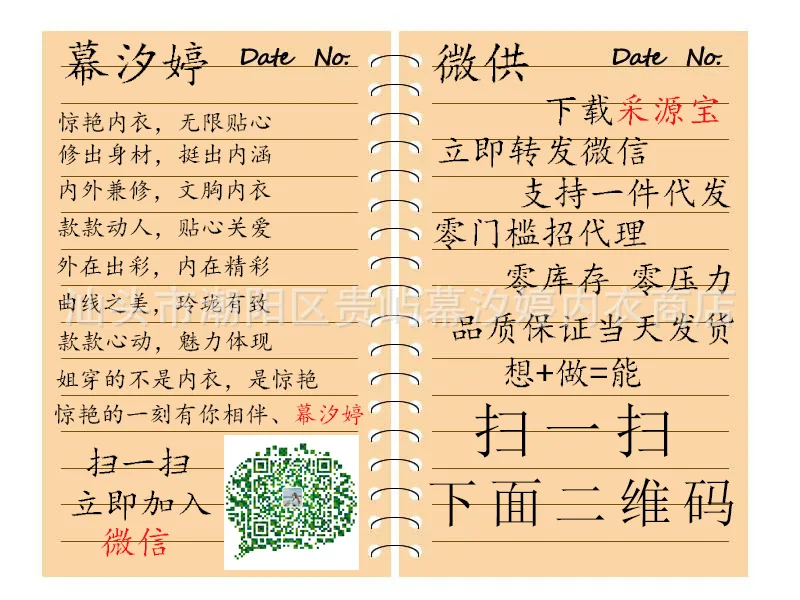 幕汐婷 Date No.
惊艳内衣，无限贴心
修出身材，挺出内涵
内外兼修，文胸内衣
款款动人，贴心关爱
外在出彩，内在精彩
曲线之美，玲珑有致
款款心动，魅力体现
姐穿的不是内衣，是惊艳
惊艳的一刻有你相伴、幕汐婷
扫一扫
立即加入
微信
微供 Date No.
下载采源宝
立即转发微信
支持一件代发
零门槛招代理
零库存 零压力
品质保证当天发货
想+做=能
扫一扫
下面二维码
汕头市潮阳区贵屿幕汐婷内衣商店